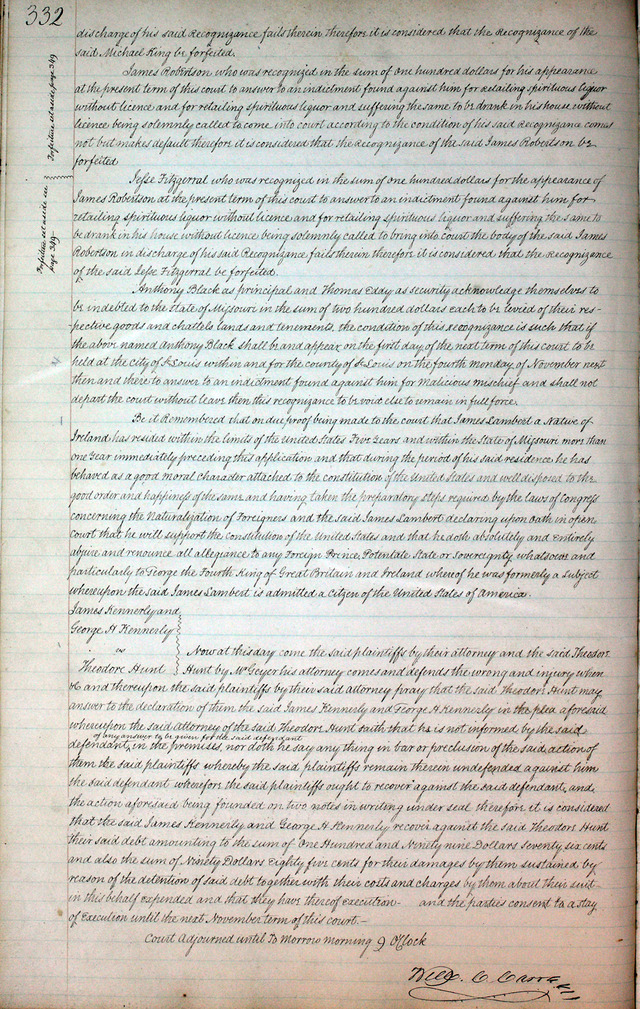 332
discharge of his said Recognizance fails therein therefore it is considered that the Recognizance of the
said Michael King be forfeited.
Forfeiture set aside page 349
James Robertson who was recognized in the sum of One hundred dollars for his appearance
at the present term of this court to answer to an indictment found against him for Retailing spirituous liquor
without licence and for retailing spirituous liquor and suffering the same to be drank in his house without
licence being solemnly called to come into court according to the condition of his said Recognizance comes
not but makes default therefore it is considered that the Recognizance of the said James Robertson be
forfeited
Forfeiture set aside see
page 349
Jesse Fitzgerral who was recognized in the sum of one hundred dollars for the appearance of
James Robertson at the present term of this court to answer to an indictment found against him for
retailing spirituous liquor without licence and for retailing spirituous liquor and suffering the same to
be drank in his house without licence being solemnly called to bring into court the body of the said James
Robertson in discharge of his said Recognizance fails therein therefore it is considered that the Recognizance
of the said Jesse Fitzgerral be forfeited.
Anthony Black as principal and Thomas Eday as security acknowledge themselves to
be indebted to the State of Missouri in the sum of two hundred dollars each to be levied of their res-
-pective goods and chattels lands and tenements, the condition of this recognizance is such that if
the above named Anthony Black shall be and appear on the first day of the next term of this court to be
held at the city of St Louis within and for the county of St Louis on the fourth monday of November next
then and there to answer to an indictment found against him for Malicious mischief and shall not
depart the court without leave then this recognizance to be void else to remain in full force.
Be it Remembered that on due proof being made to the court that James Lambert a Native of
Ireland has resided within the limits of the United States Five Years and within the State of Missouri more than
one Year immediately preceding this application and that during the period of his said residence he has
behaved as a good moral character attached to the constitution of the United States and well disposed to the
good order and happiness of the same and having taken the preparatory steps required by the laws of Congress
concerning the Naturalization of Foreigners and the said James Lambert declaring upon Oath in open
court that he will support the constitution of the United States and that he doth absolutely and Entirely
abjure and renounce all allegiance to any Foreign Prince, Potentate State or Sovereignty whatsoever and
particularly to George the Fourth King of Great Britain and Ireland whereof he was formerly a Subject
whereupon the said James Lambert is admitted a Citizen of the United States of America.
James Kennerly and
George H Kennerly
vs
Theodore Hunt
Now at this day come the said plaintiffs by their attorney and the said Theodore
Hunt by Mr Geyer his attorney comes and defends the wrong and injury when
&c and thereupon the said plaintiffs by their said attorney pray that the said Theodore Hunt may
answer to the declaration of them the said James Kennerly and George H Kennerly in the plea aforesaid
whereupon the said attorney of the said Theodore Hunt saith that he is not informed by the said
of any answer to be given for the said defendant
defendant, in the premises, nor doth he say any thing in bar or preclusion of the said action of
them the said plaintiffs whereby the said plaintiffs remain therein undefended against him
the said defendant wherefore the said plaintiffs ought to recover against the said defendant, and
the action aforesaid being founded on two notes in writing under seal therefore it is considered
that the said James Kennerly and George H Kennerly recover against the said Theodore Hunt
their said debt amounting to the sum of One Hundred and Ninety nine Dollars Seventy six cents
and also the sum of Ninety Dollars Eighty five cents for their damages by them sustained by
reason of the detention of said debt together with their costs and charges by them about their suit
in this behalf expended and that they have thereof execution- and the parties consent to a stay
of Execution until the next November term of this court.-
Court Adjourned until To Morrow morning 9 O'Clock
Will. C. Carr